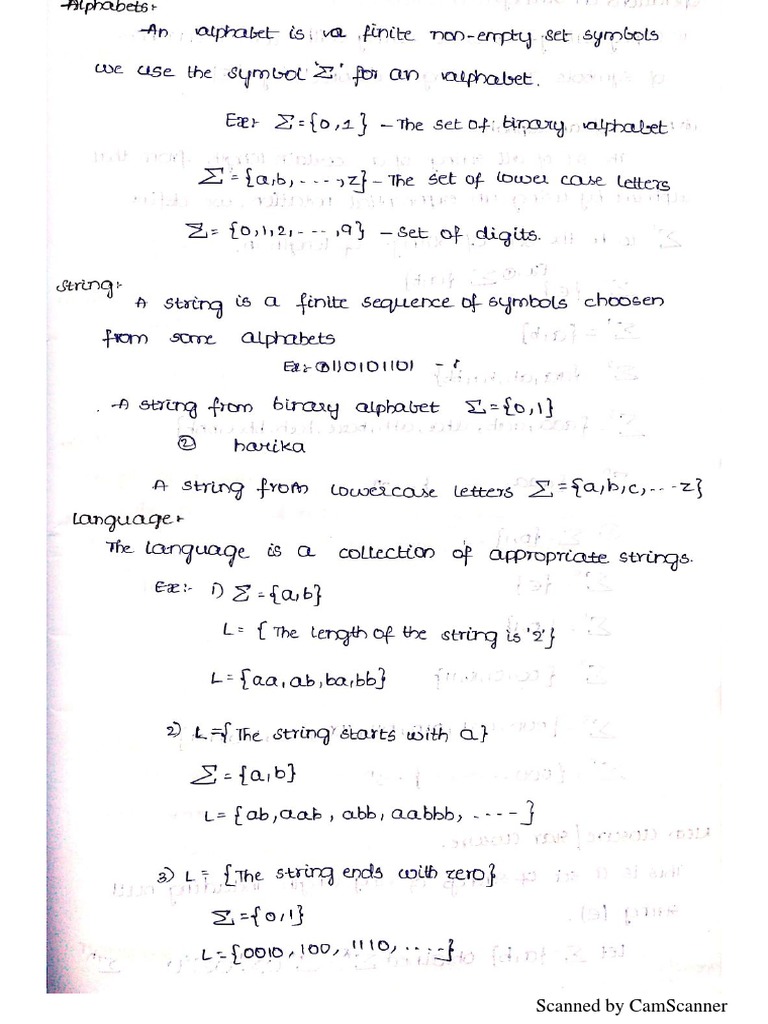 Alphabets:-
An alphabet is a finite non-empty set symbols
we use the symbol 'Σ' for an alphabet.
Ex:- Σ={0,1} - The set of binary alphabet
Σ={a,b, ----,z} - The set of lower case letters
Σ= {0,1,2,- --,9} - set of digits.
String:-
A string is a finite sequence of symbols choosen
from some alphabets
Ex:- 0110101101 -
A string from binary alphabet Σ={0,1}
② harika
A string from lowercase letters Σ={a,b,c,...-z}
Language:-
The language is a collection of appropriate strings.
Ex:- 1) Σ={a,b}
L= { The length of the string is '2'}
L={aa,ab,ba,bb}
2) L={The string starts with a}
Σ={a,b}
L= {ab,aab, abb, aabbb, .----}
3) L= {The string ends with zero}
Σ={0,1}
L={0010,100, 1110,....-}
Scanned by CamScanner